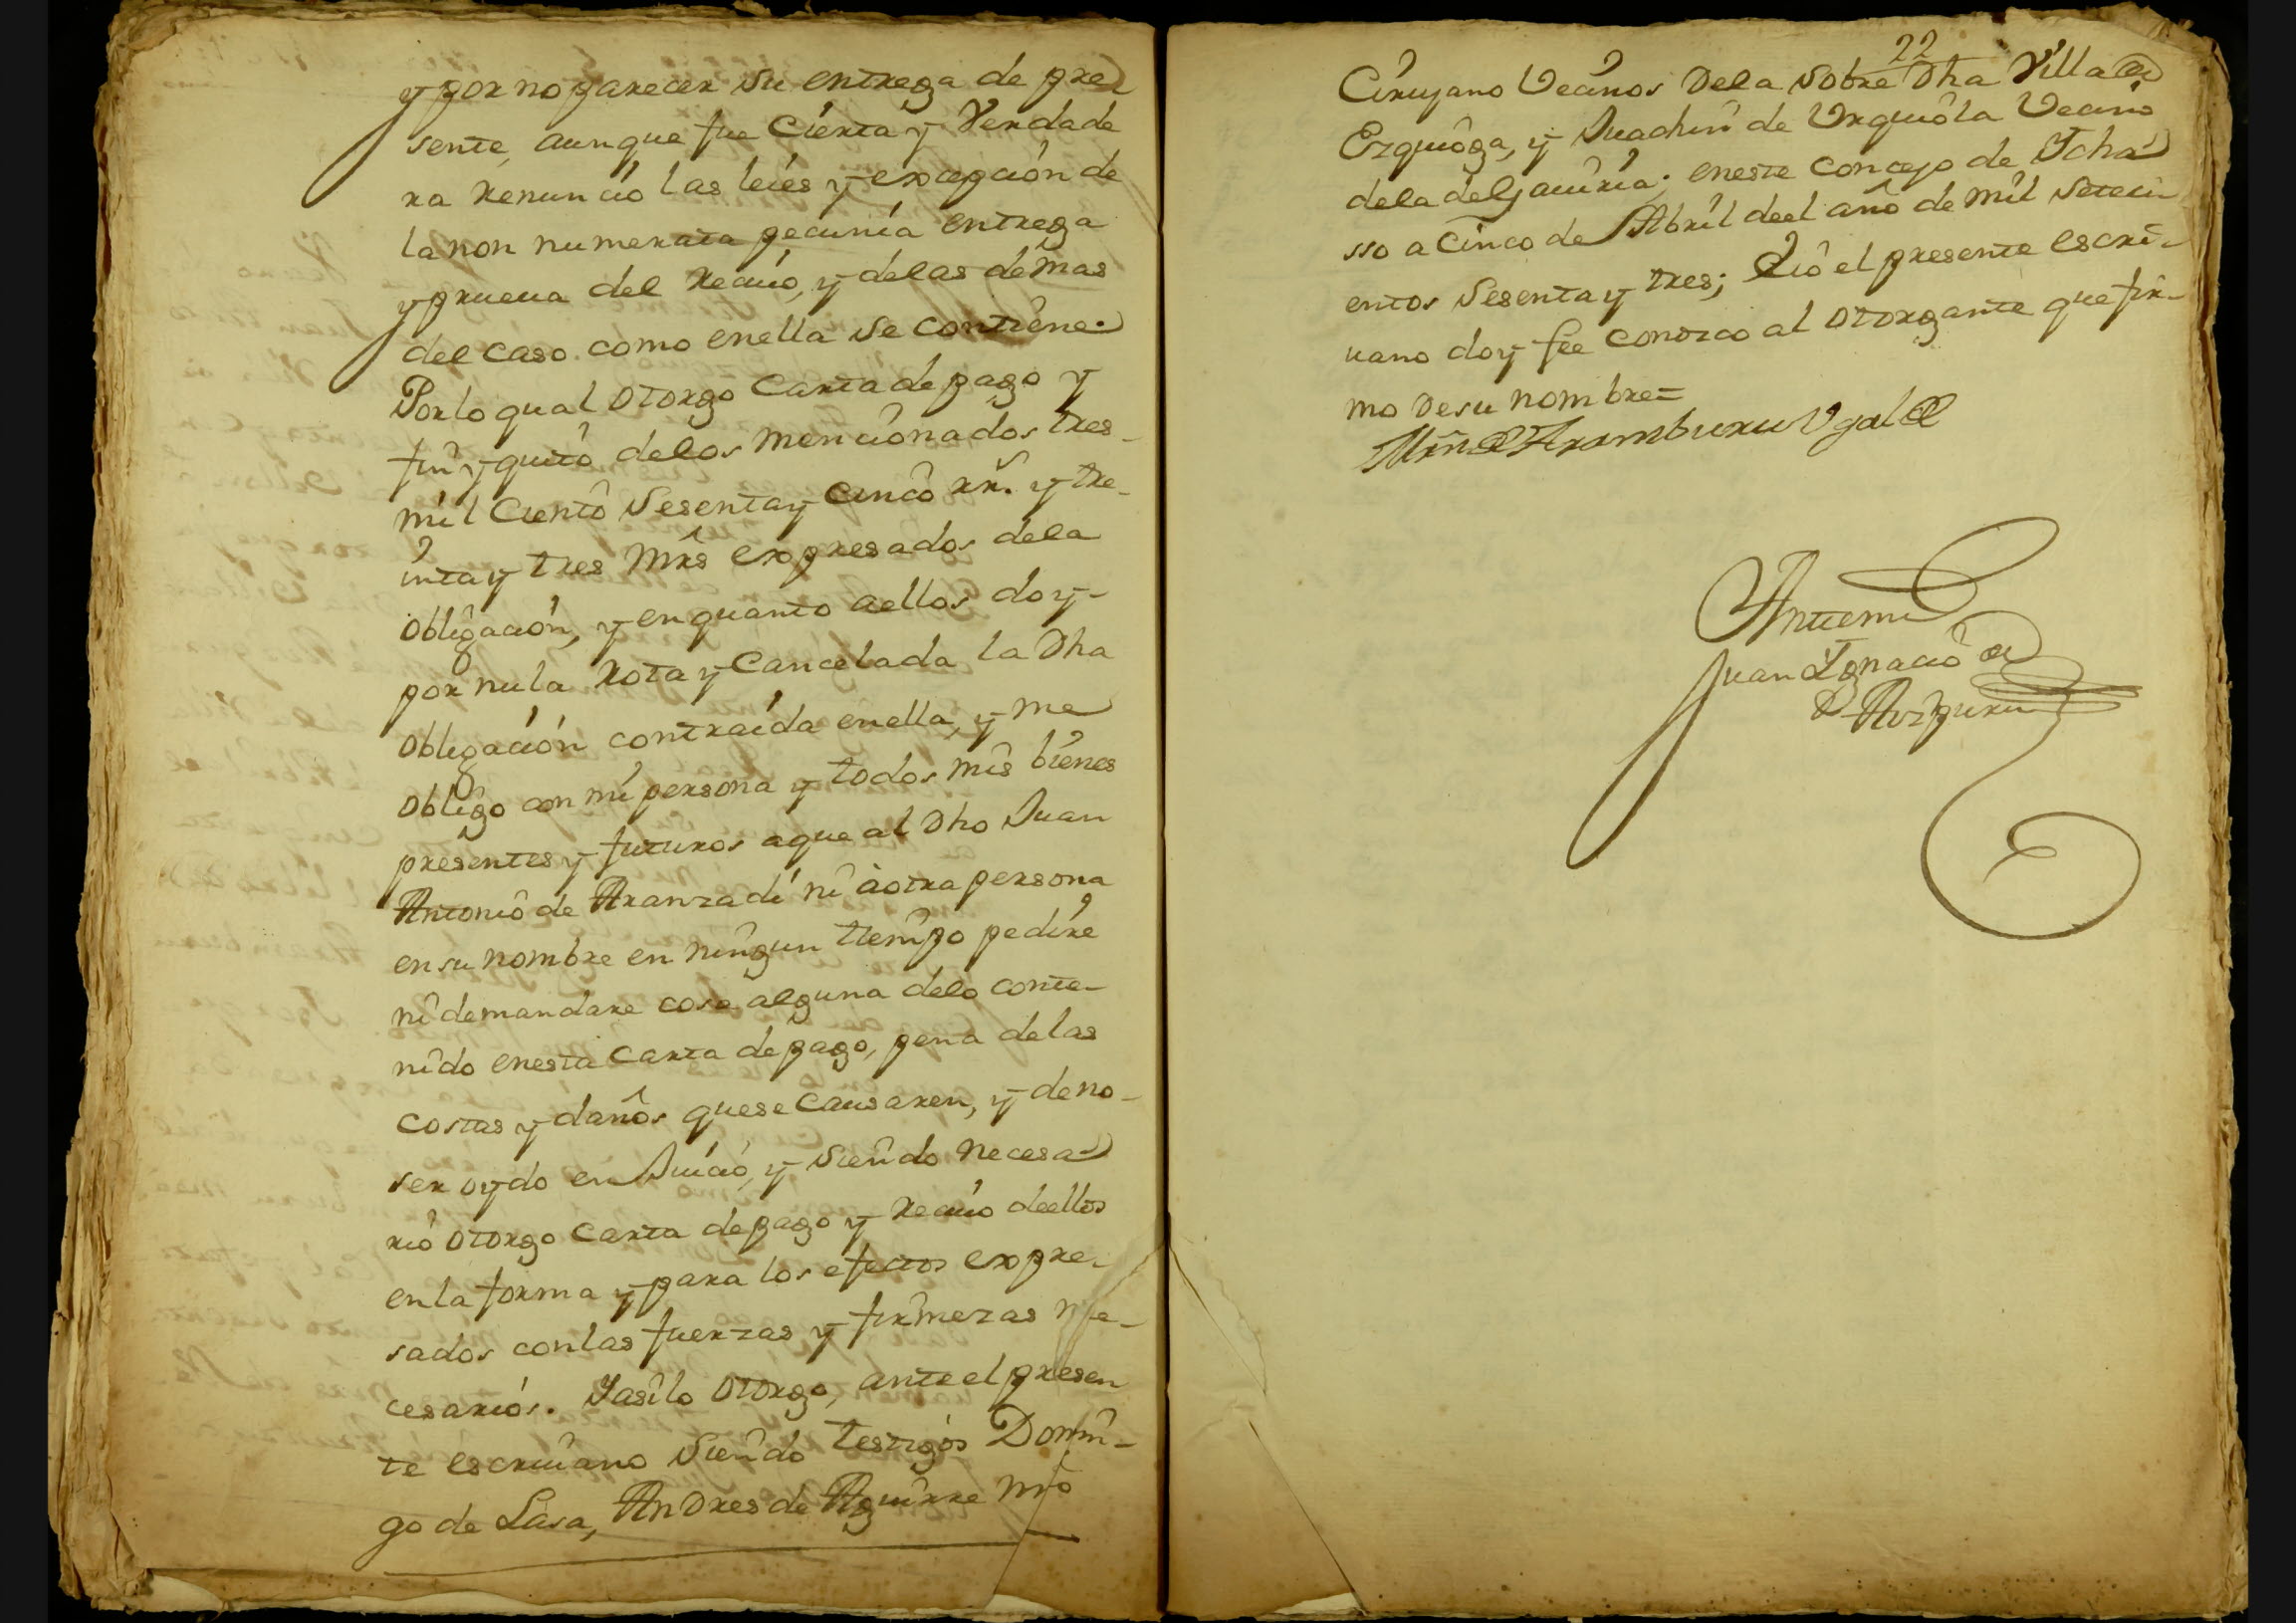 y por no parecer su entrega de pre
sente, aunque fue Cierta y Verdade
ra Renunció las leies y excepción de
la non numerata pecunia entrega
y prueua del Reciuo, y delas demas
del caso como enella se contiene.
Porlo qual otorgo Carta de pago y
fin y quito delos mencionados tres
mil Ciento Sesenta y Cinco rr.s y tre-
inta y tres Mrs expresados dela
obligación, y en quanto aellos doy
por nula Rota y Cancelada la Dha
obligación contraida enella, y me
obligo con mi persona y todos mis bienes
presentes y futuros aque al Dho Juan
Antonio de Aranzadi ni à otra persona
ensu nombre en ningun tiempo pedire
ni demandare cosa alguna delo conte-
nido enesta Carta de pago, pena delas
costas y daños quese Causaren, y de no-
ser oydo en Juicio, y siendo necesa
rio otorgo Carta de pago y Reciuo deellos
enla forma y para los efectos expre-
sados conlas fuerzas y firmezas ne-
cesarios. Yasilo otorgo, ante el presen
te escriuano siendo testigos Domin-
go de Lasa, Andres de Aguirre mro
22
Cirujano Vecinos Dela Sobre Dha Villa de
Ezquioga, y Juachin de Urquiola Vecino
dela delgauiria; eneste concejo de Ycha
sso a Cinco de Abril deel año de mil seteci-
entos Sesenta y tres; Eió el presente escri-
uano doy fee conozco al otorgante que fir-
mo de su nombre=
Mrn de Aramburu Vgalde
Antemi
Juan Ignacio de
Aozpuru